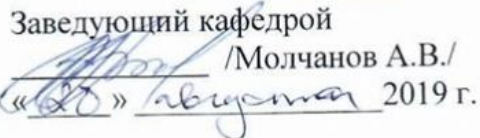 Заведующий кафедрой
/Молчанов А.В./
«28» августа 2019 г.